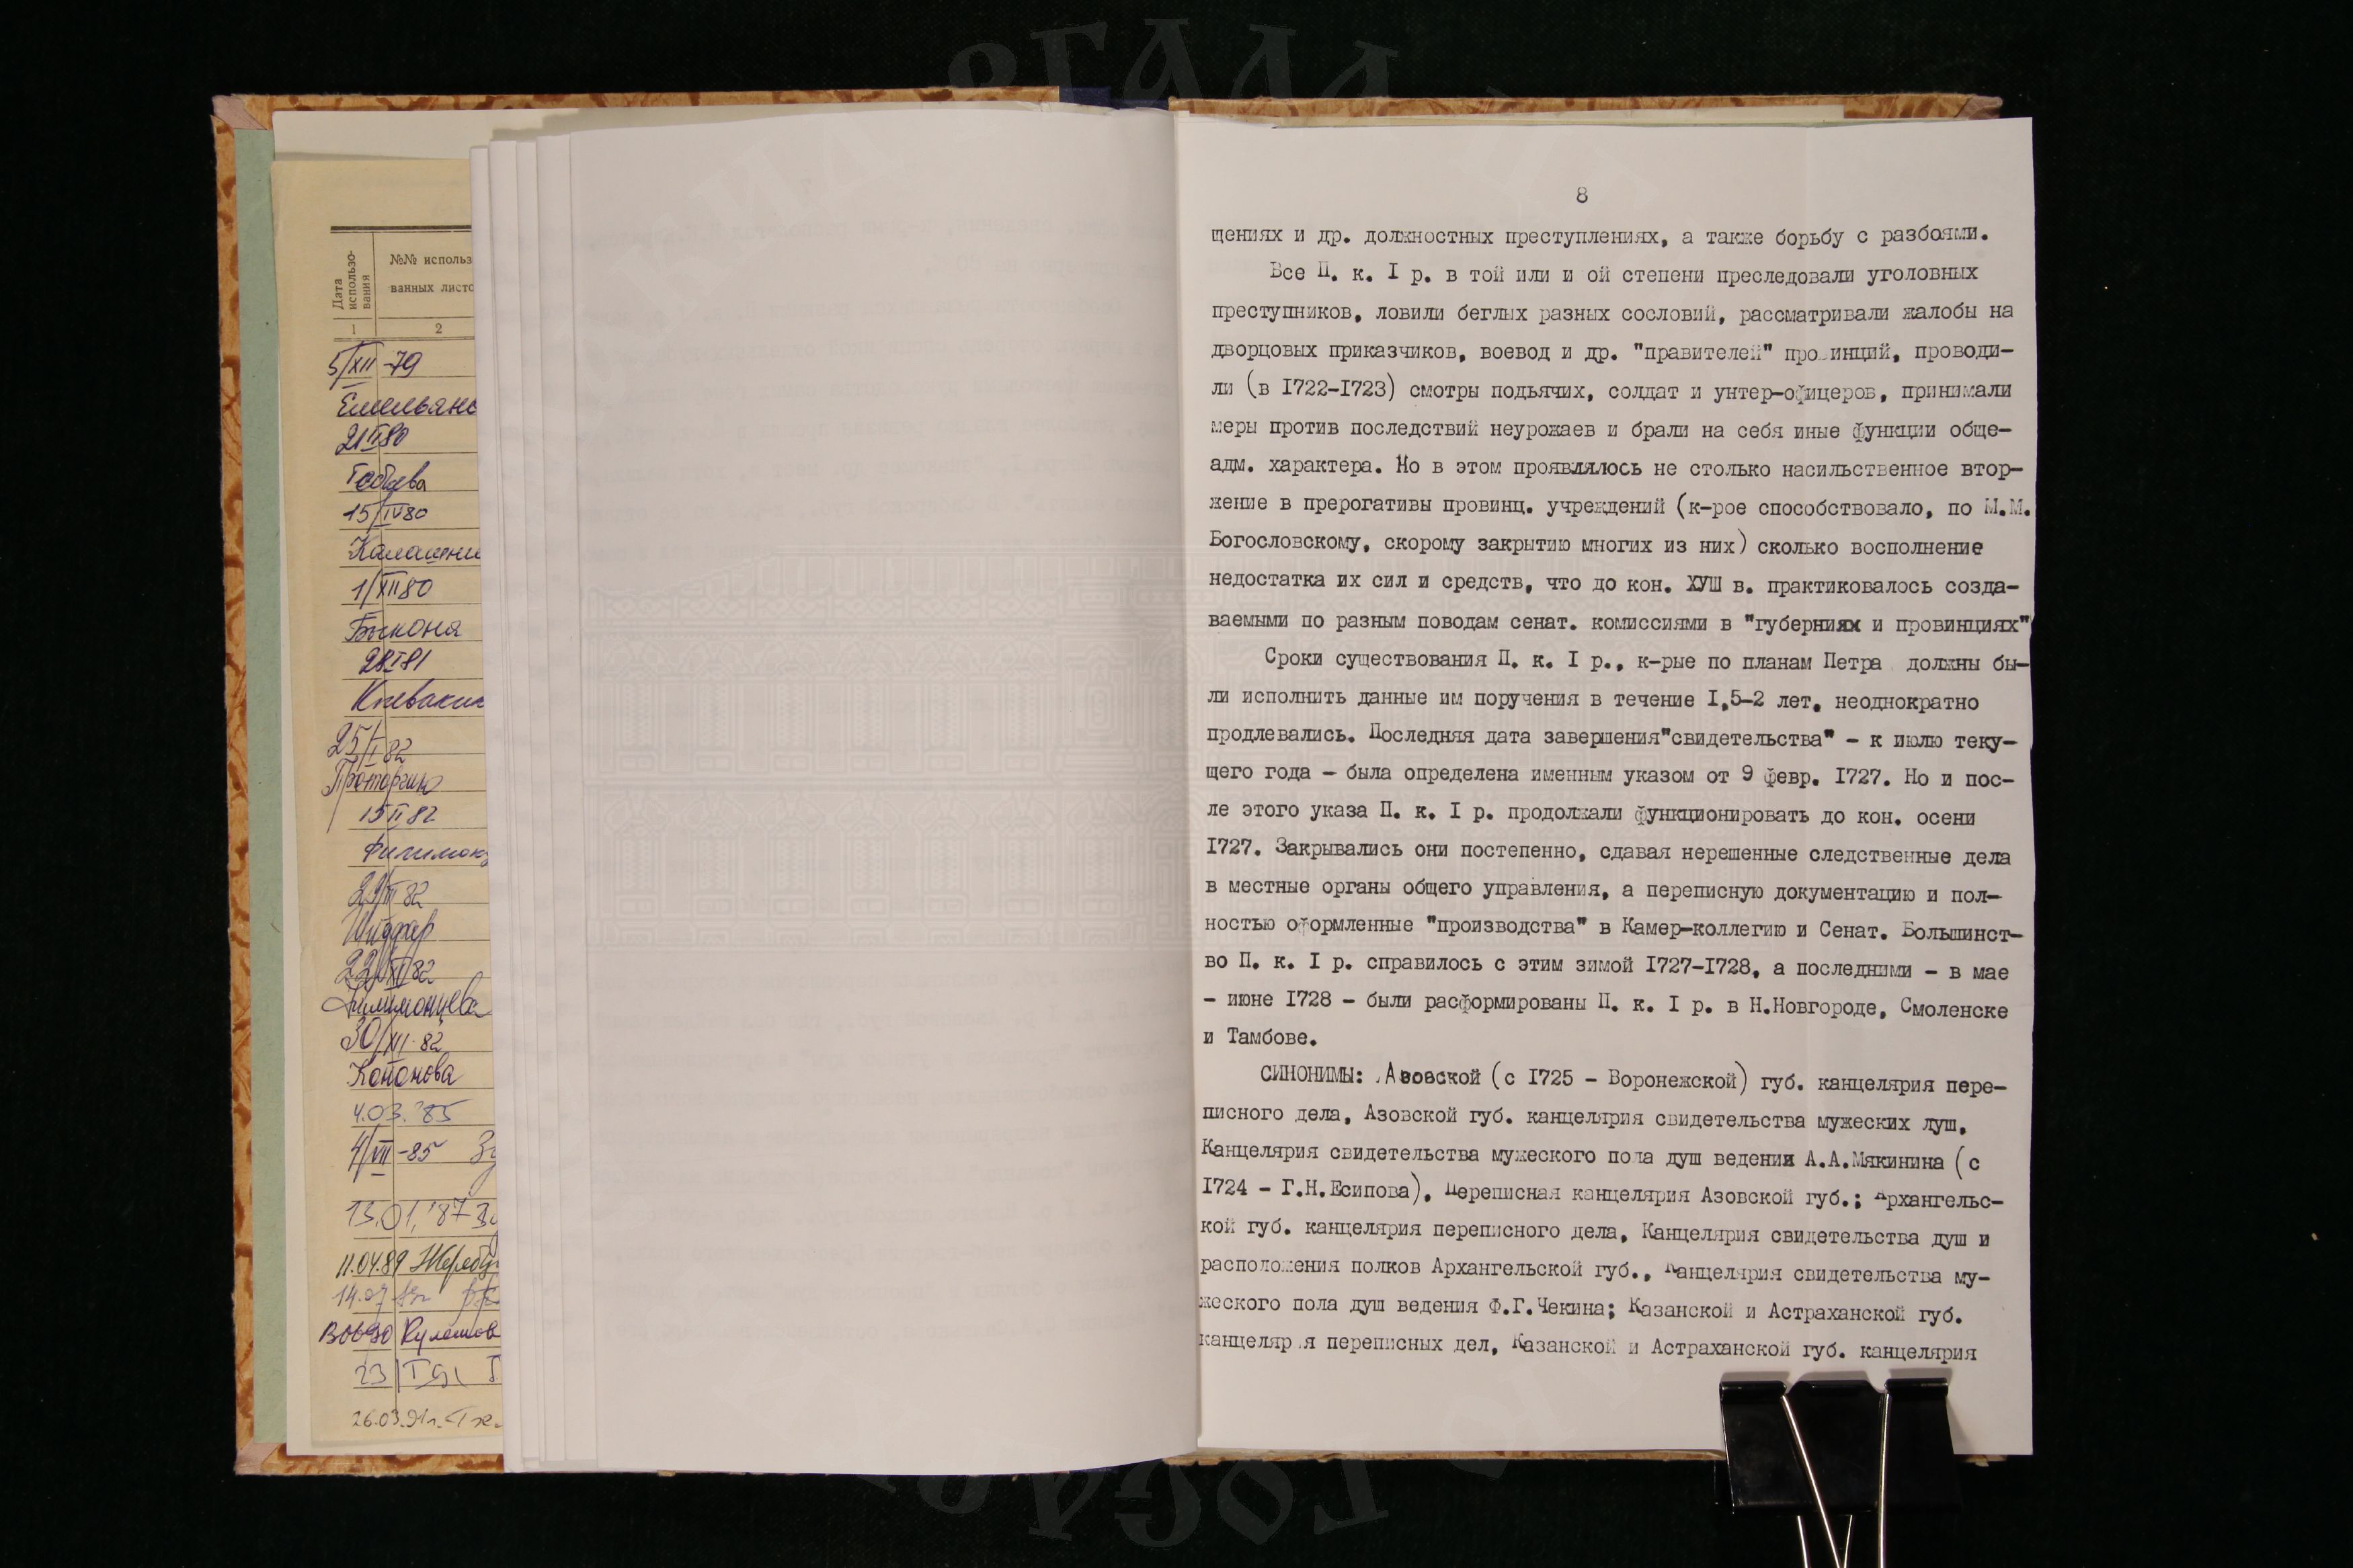 Дата использо-
вания
№№ использ
ванных листо
1
2
5/XII-79
21 II 80
15/IV 80
1/XII 80
Быконя
28 I 81
25/I 82
15 II 82
22/XII 82
Филимонцева
30/XII-82
Кононова
4.03.'85
4/VII-85
13.01.'87
11.04.89 Жереб
Кулешов
26.03.91г.
8
щениях и др. должностных преступлениях, а также борьбу с разбоями.
Все П. к. I р. в той или и ой степени преследовали уголовных
преступников, ловили беглых разных сословий, рассматривали жалобы на
дворцовых приказчиков, воевод и др. "правителей" про инций, проводи-
ли (в I722-I723) смотры подьячих, солдат и унтер-офицеров, принимали
меры против последствий неурожаев и брали на себя иные функции обще-
адм. характера. Но в этом проявлялось не столько насильственное втор-
жение в прерогативы провинц. учреждений (к-рое способствовало, по М.М.
Богословскому, скорому закрытию многих из них) сколько восполнение
недостатка их сил и средств, что до кон. ХУШ в. практиковалось созда-
ваемыми по разным поводам сенат. комиссиями в "губерниях и провинциях"
Сроки существования П. к. I р., к-рые по планам Петра должны бы-
ли исполнить данные им поручения в течение I,5-2 лет, неоднократно
продлевались. Последняя дата завершения"свидетельства" - к июлю теку-
щего года - была определена именным указом от 9 февр. I727. Но и пос-
ле этого указа П. к. I р. продолжали функционировать до кон. осени
I727. Закрывались они постепенно, сдавая нерешенные следственные дела
в местные органы общего управления, а переписную документацию и пол-
ностью оформленные "производства" в Камер-коллегию и Сенат. Большинст-
во П. к. I р. справилось с этим зимой I727-I728, а последними - в мае
- июне I728 - были расформированы П. к. I р. в Н.Новгороде, Смоленске
и Тамбове.
СИНОНИМЫ: Азовской (с I725 - Воронежской) губ. канцелярия пере-
писного дела, Азовской губ. канцелярия свидетельства мужеских душ,
Канцелярия свидетельства мужеского пола душ ведения А.А.Мякинина (с
I724 - Г.Н.Есипова), Переписная канцелярия Азовской губ.; Архангельс-
кой губ. канцелярия переписного дела, Канцелярия свидетельства душ и
расположения полков Архангельской губ., Канцелярия свидетельства му-
жеского пола душ ведения Ф.Г.Чекина; Казанской и Астраханской губ.
канцеляр я переписных дел, Казанской и Астраханской губ. канцелярия